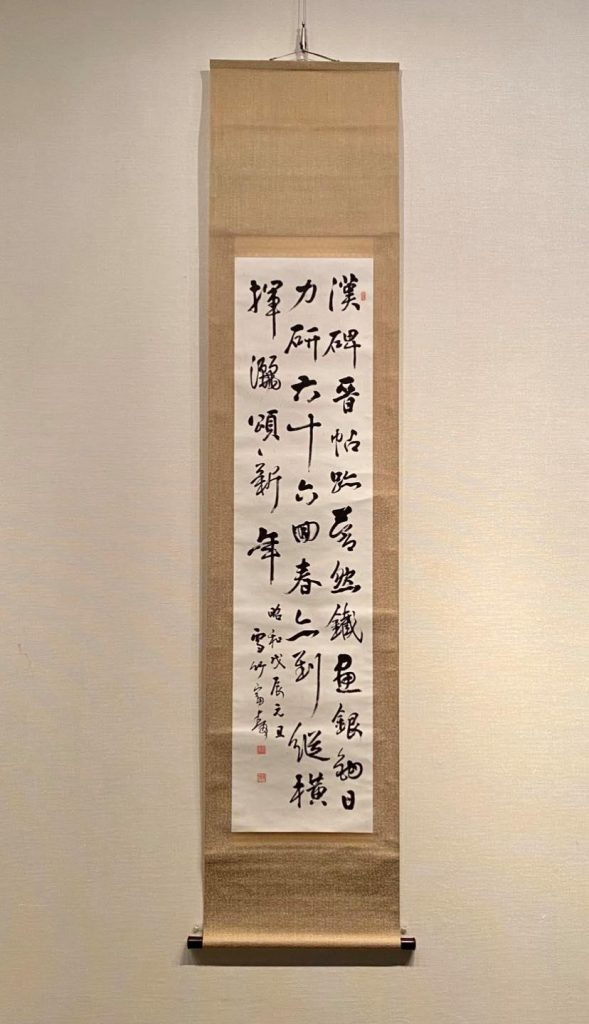 漢碑晋帖跡蒼然鐵画銀鉤日
力研六十六回春亦到縱横
揮灑頌新年
昭和戊辰元旦
雪竹富